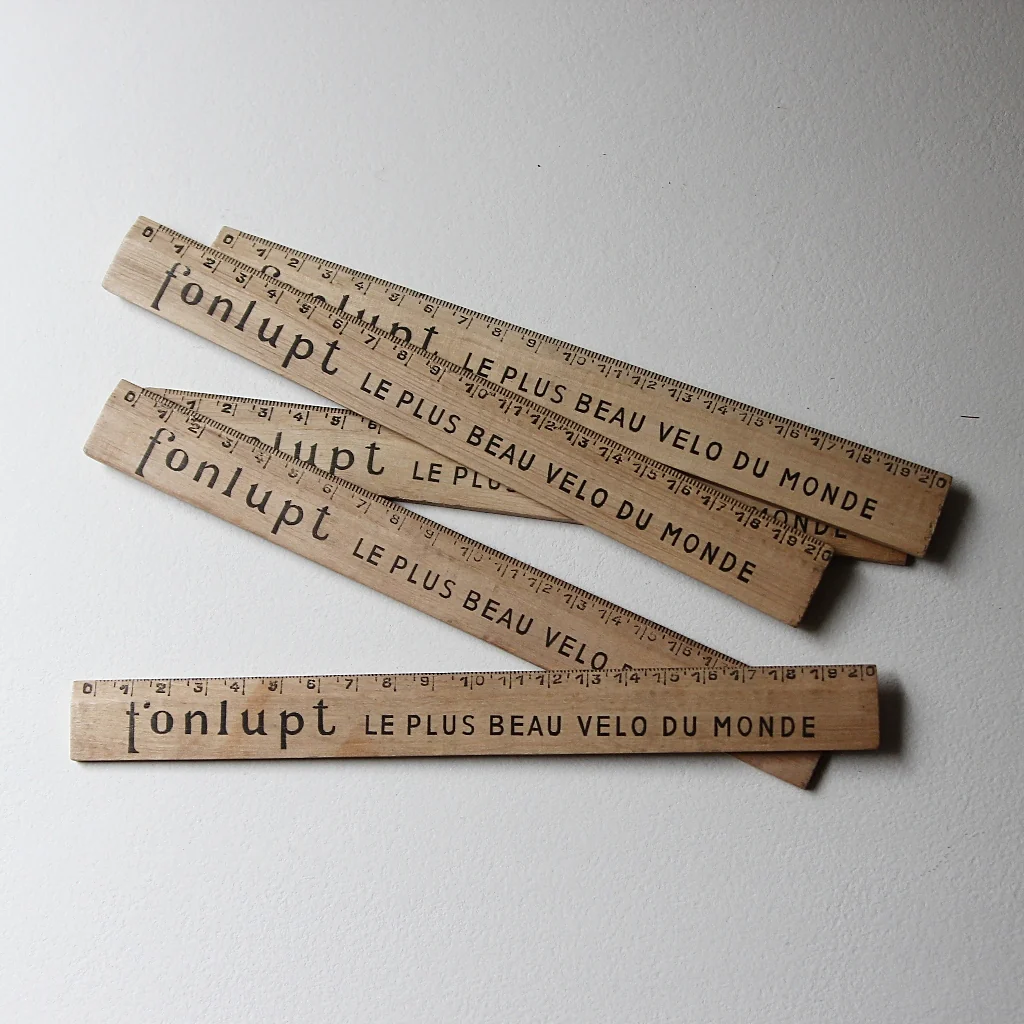 0 1 2 3 4 5 6 7 8 9 10 11 12 13 14 15 16 17 18 19 20
fonlupt LE PLUS BEAU VELO DU MONDE
0 1 2 3 4 5 6 7 8 9 10 11 12 13 14 15 16 17 18 19 20
fonlupt LE PLUS BEAU VELO DU MONDE
1 2 3 4 5 6
lupt LE PLUS MONDE
0 1 2 3 4 5 6 7 8 9 10 11 12 13 14 15 16
fonlupt LE PLUS BEAU VELO
0 1 2 3 4 5 6 7 8 9 10 11 12 13 14 15 16 17 18 19 20
fonlupt LE PLUS BEAU VELO DU MONDE